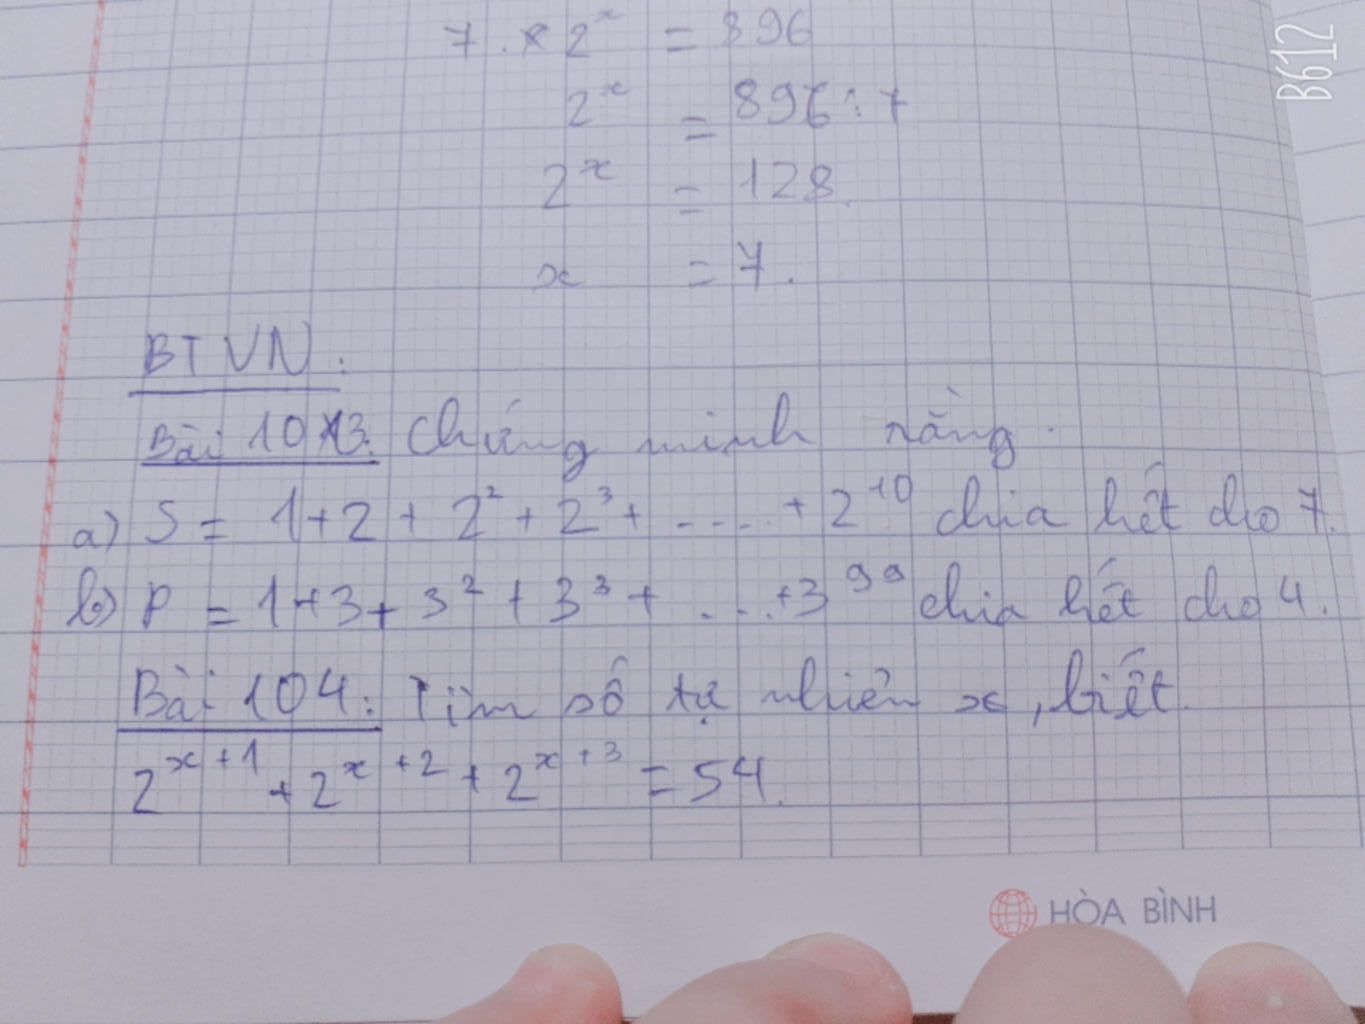 7 . 2^x = 896
2^x = 896 : 7
2^x = 128.
x = 7.
BTVN:
Bài 103. Chứng minh rằng.
a) S = 1+2 + 2² + 2³ + ..... + 2^10 chia hết cho 7.
b) P = 1+3+ 3² + 3³ + ....+3^99 chia hết cho 4.
Bài 104: Tìm số tự nhiên x, biết.
2^x+1 + 2^x+2 + 2^x+3 = 54.
HÒA BÌNH
B612